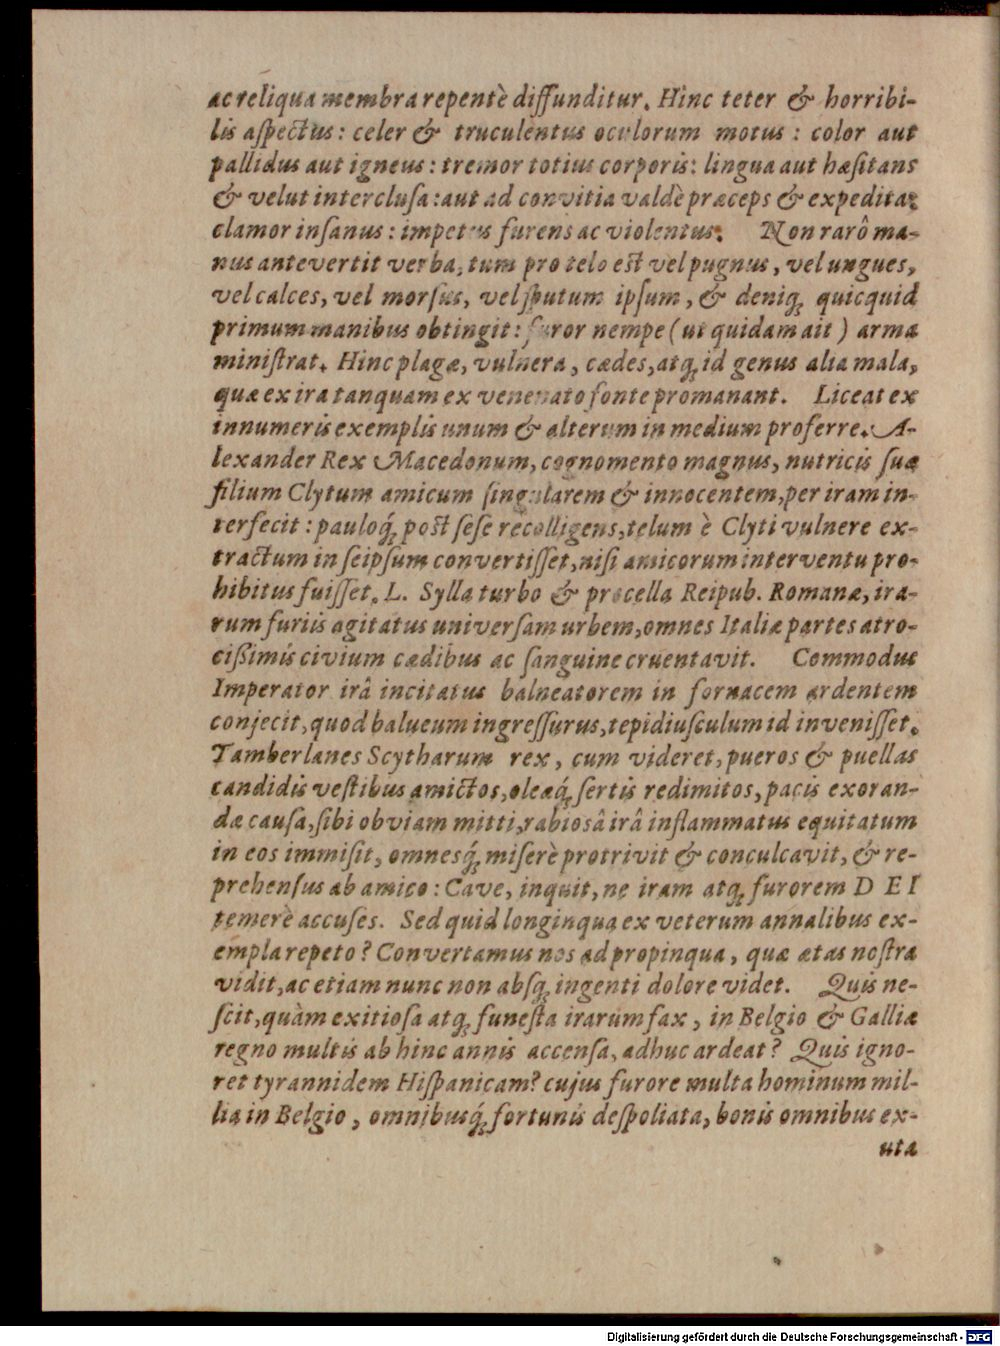 ac reliqua membra repentè diffunditur. Hinc teter & horribi-
lis aſpectus: celer & truculentus oculorum motus: color aut
pallidus aut igneus: tremor totius corporis: lingua aut hæſitans
& velut intercluſa: aut ad convitia valdè præceps & expedita:
clamor inſanus: impetus furens ac violentus. Non rarô ma-
nus antevertit verba, tum pro telo eſt vel pugnus, vel ungues,
vel calces, vel morſus, vel ſputum ipſum, & deniq; quicquid
primum manibus obtingit: furor nempe (ut quidam ait) arma
miniſtrat. Hinc plagæ, vulnera, cædes, atq; id genus alia mala,
quæ ex ira tanquam ex venenato fonte promanant. Liceat ex
innumeris exemplis unum & alterum in medium proferre. A-
lexander Rex Macedonum, cognomento magnus, nutricis ſuæ
filium Clytum amicum ſingularem & innocentem, per iram in-
terfecit: pauloq́; poſt ſeſe recolligens, telum è Clyti vulnere ex-
tractum in ſeipſum convertiſſet, niſi amicorum interventu pro-
hibitus fuiſſet. L. Sylla turbo & procella Reipub. Romanæ, ira-
rum furiis agitatus univerſam urbem, omnes Italiæ partes atro-
cißimis civium cædibus ac ſanguine cruentavit. Commodus
Imperator irâ incitatus balneatorem in fornacem ardentem
conjecit, quod balneum ingreſſurus, tepidiuſculum id inveniſſet.
Tamberlanes Scytharum rex, cum videret, pueros & puellas
candidis veſtibus amictos, oleaq́; ſertis redimitos, pacis exoran-
dæ cauſa, ſibi obviam mitti, rabioſâ irâ inflammatus equitatum
in eos immiſit, omnesq́; miſerè protrivit & conculcavit, & re-
prehenſus ab amico: Cave, inquit, ne iram atq; furorem D E I
temerè accuſes. Sed quid longinqua ex veterum annalibus ex-
empla repeto? Convertamus nos ad propinqua, quæ ætas noſtra
vidit, ac etiam nunc non absq; ingenti dolore videt. Quis ne-
ſcit, quàm exitioſa atq; funeſta irarum fax, in Belgio & Galliæ
regno multis ab hinc annis accenſa, adhuc ardeat? Quis igno-
ret tyrannidem Hiſpanicam? cujus furore multa hominum mil-
lia in Belgio, omnibusq́; fortunis deſpoliata, bonis omnibus ex-
uta
Digitalisierung gefördert durch die Deutsche Forschungsgemeinschaft - DFG